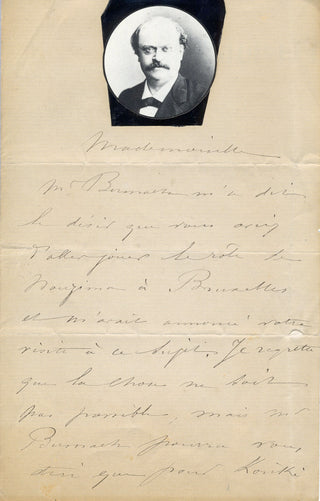 Mademoiselle
Mr Burnach m'a dit
le désir que vous aviez
d'aller jouer le rôle de
à Bruxelles
et m'avait annoncé votre
visite à ce sujet. Je regrette
que la chose ne soit
pas possible, mais Mr
Burnach pourra vous
dire que pour